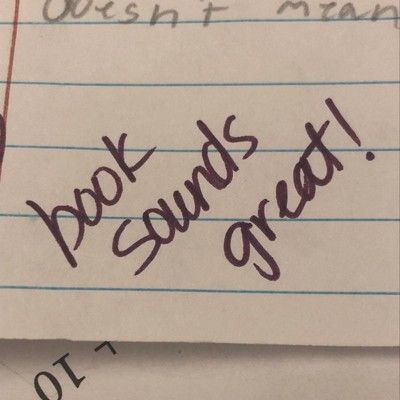 Doesn't mean
book
sounds
great!
10